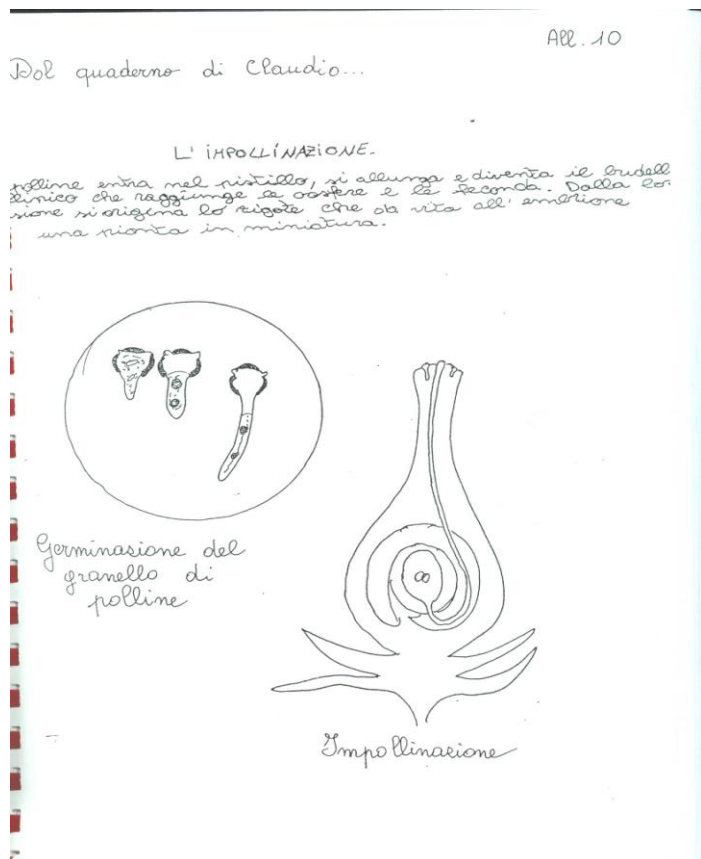 All. 10
Dal quaderno di Claudio...
L' IMPOLLINAZIONE.
polline entra nel pistillo, si allunga e diventa il budell
linico che raggiunge le oosfere e la feconda. Dalla
sione si origina lo zigote che da vita all'embrione
una pianta in miniatura.
Germinazione del
granello di
polline
Impollinazione